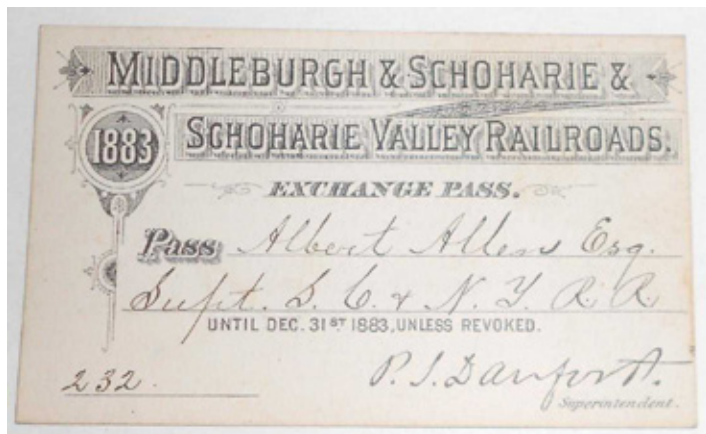 MIDDLEBURGH & SCHOHARIE &
1883 SCHOHARIE VALLEY RAILROADS.
EXCHANGE PASS.
Pass Albert Allen Esq.
Supt. S. C. & N. Y. R. R.
UNTIL DEC. 31ST 1883, UNLESS REVOKED.
232. P. S. Danforth.
Superintendent.